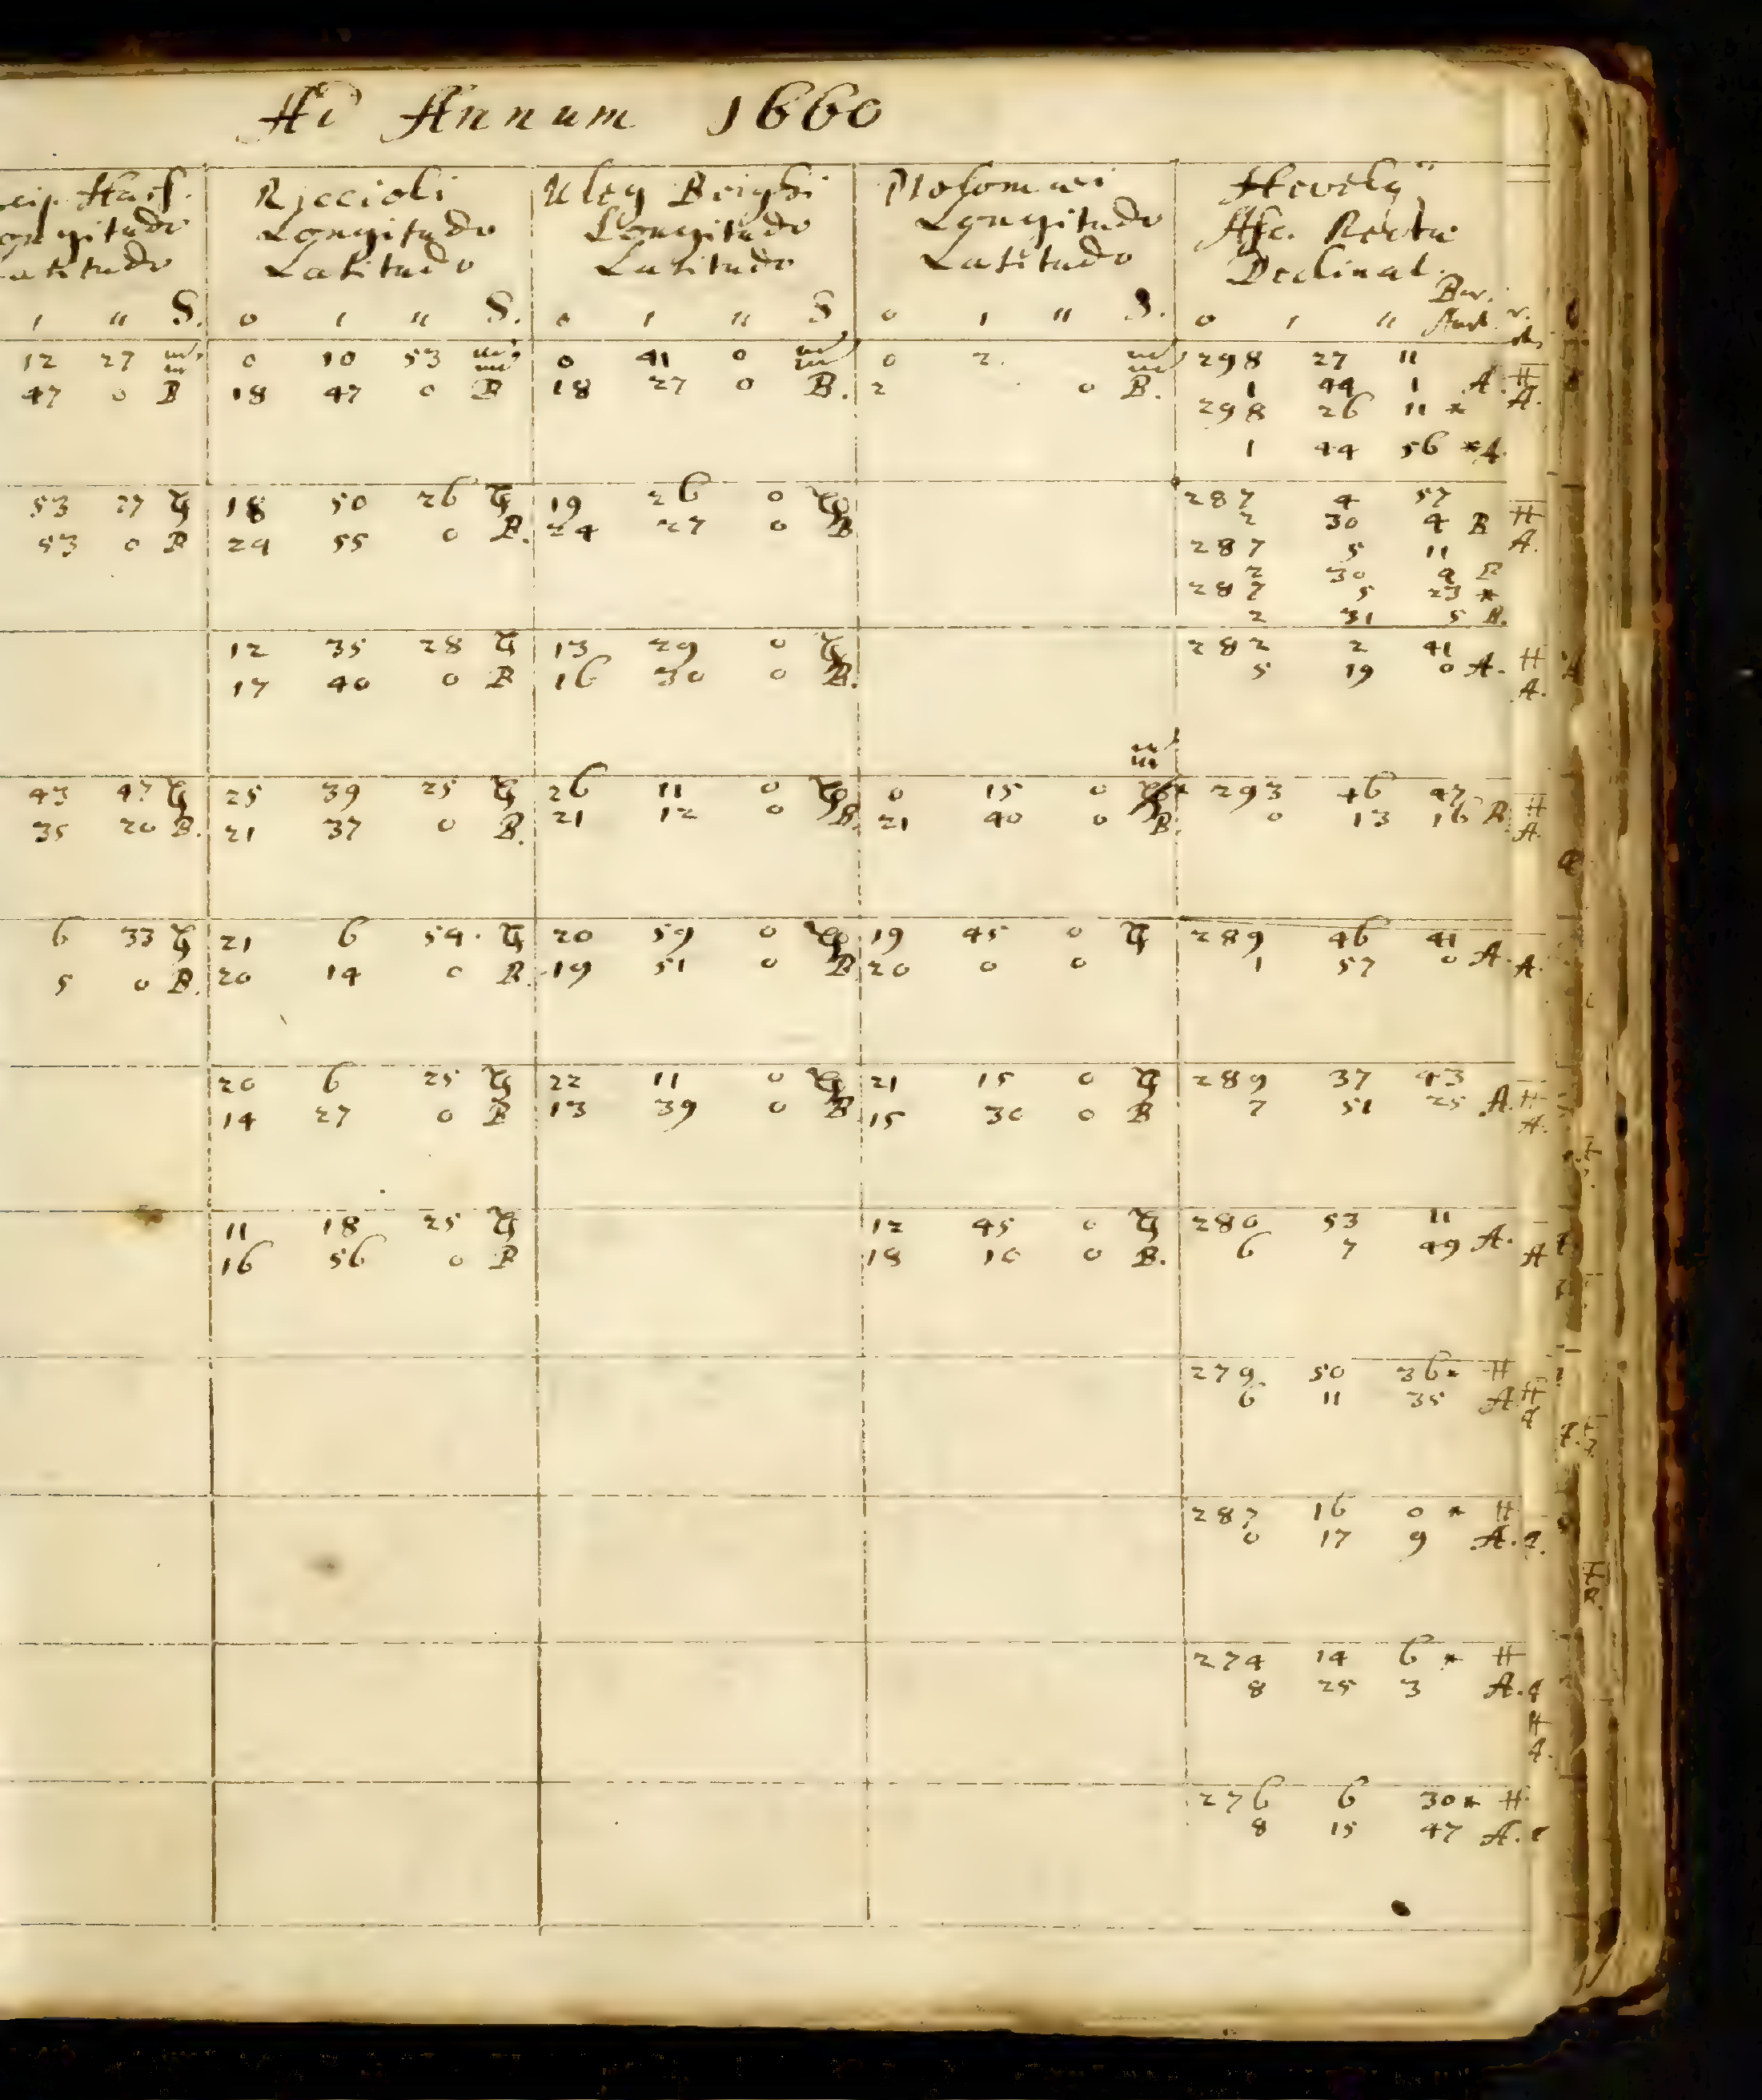 Ad Annum 1660
Hass. Riccioli Uleg Beighi Ptolomaei Hevelij
ongitudo Longitudo Longitudo Longitudo Asc. Recta
atitudo Latitudo Latitudo Latitudo Declinat.
Bor.
' " S. ° ' " S. ° ' " S ° ' " S. ° ' " Aust.
12 27 ♒ 0 10 53 ♒ 0 41 0 ♒ 0 2 ♒ 298 27 11
47 0 B 18 47 0 B 18 27 0 B. 2 0 B. 1 44 1 A.
298 26 11 *
1 44 56 * A.
53 27 ♑ 18 50 26 ♑ 19 26 0 ♑ 287 4 57
53 0 B 24 55 0 B. 24 27 0 B 2 30 4 B
287 5 11
2 30 9 B
287 5 23 *
2 31 5 B.
12 35 28 ♑ 13 29 0 ♑ 282 2 41
17 40 0 B 16 30 0 B. 5 19 0 A.
♒
43 47 ♑ 25 39 25 ♑ 26 11 0 ♑ 0 15 0 293 46 47
35 20 B. 21 37 0 B. 21 12 0 B. 21 40 0 B. 0 13 16 B
6 33 ♑ 21 6 54 ♑ 20 59 0 ♑ 19 45 0 ♑ 289 46 41
5 0 B. 20 14 0 B. 19 51 0 B 20 0 0 1 57 0 A.
20 6 25 ♑ 22 11 0 ♑ 21 15 0 ♑ 289 37 43
14 27 0 B 13 39 0 B 15 30 0 B 7 51 25 A.
11 18 25 ♑ 12 45 0 ♑ 280 53 11
16 56 0 B 18 10 0 B. 6 7 49 A.
279 50 36 * H
6 11 35 A
287 16 0 * H
0 17 9 A.
274 14 6 * H
8 25 3 A.
276 6 30 * H
8 15 47 A.